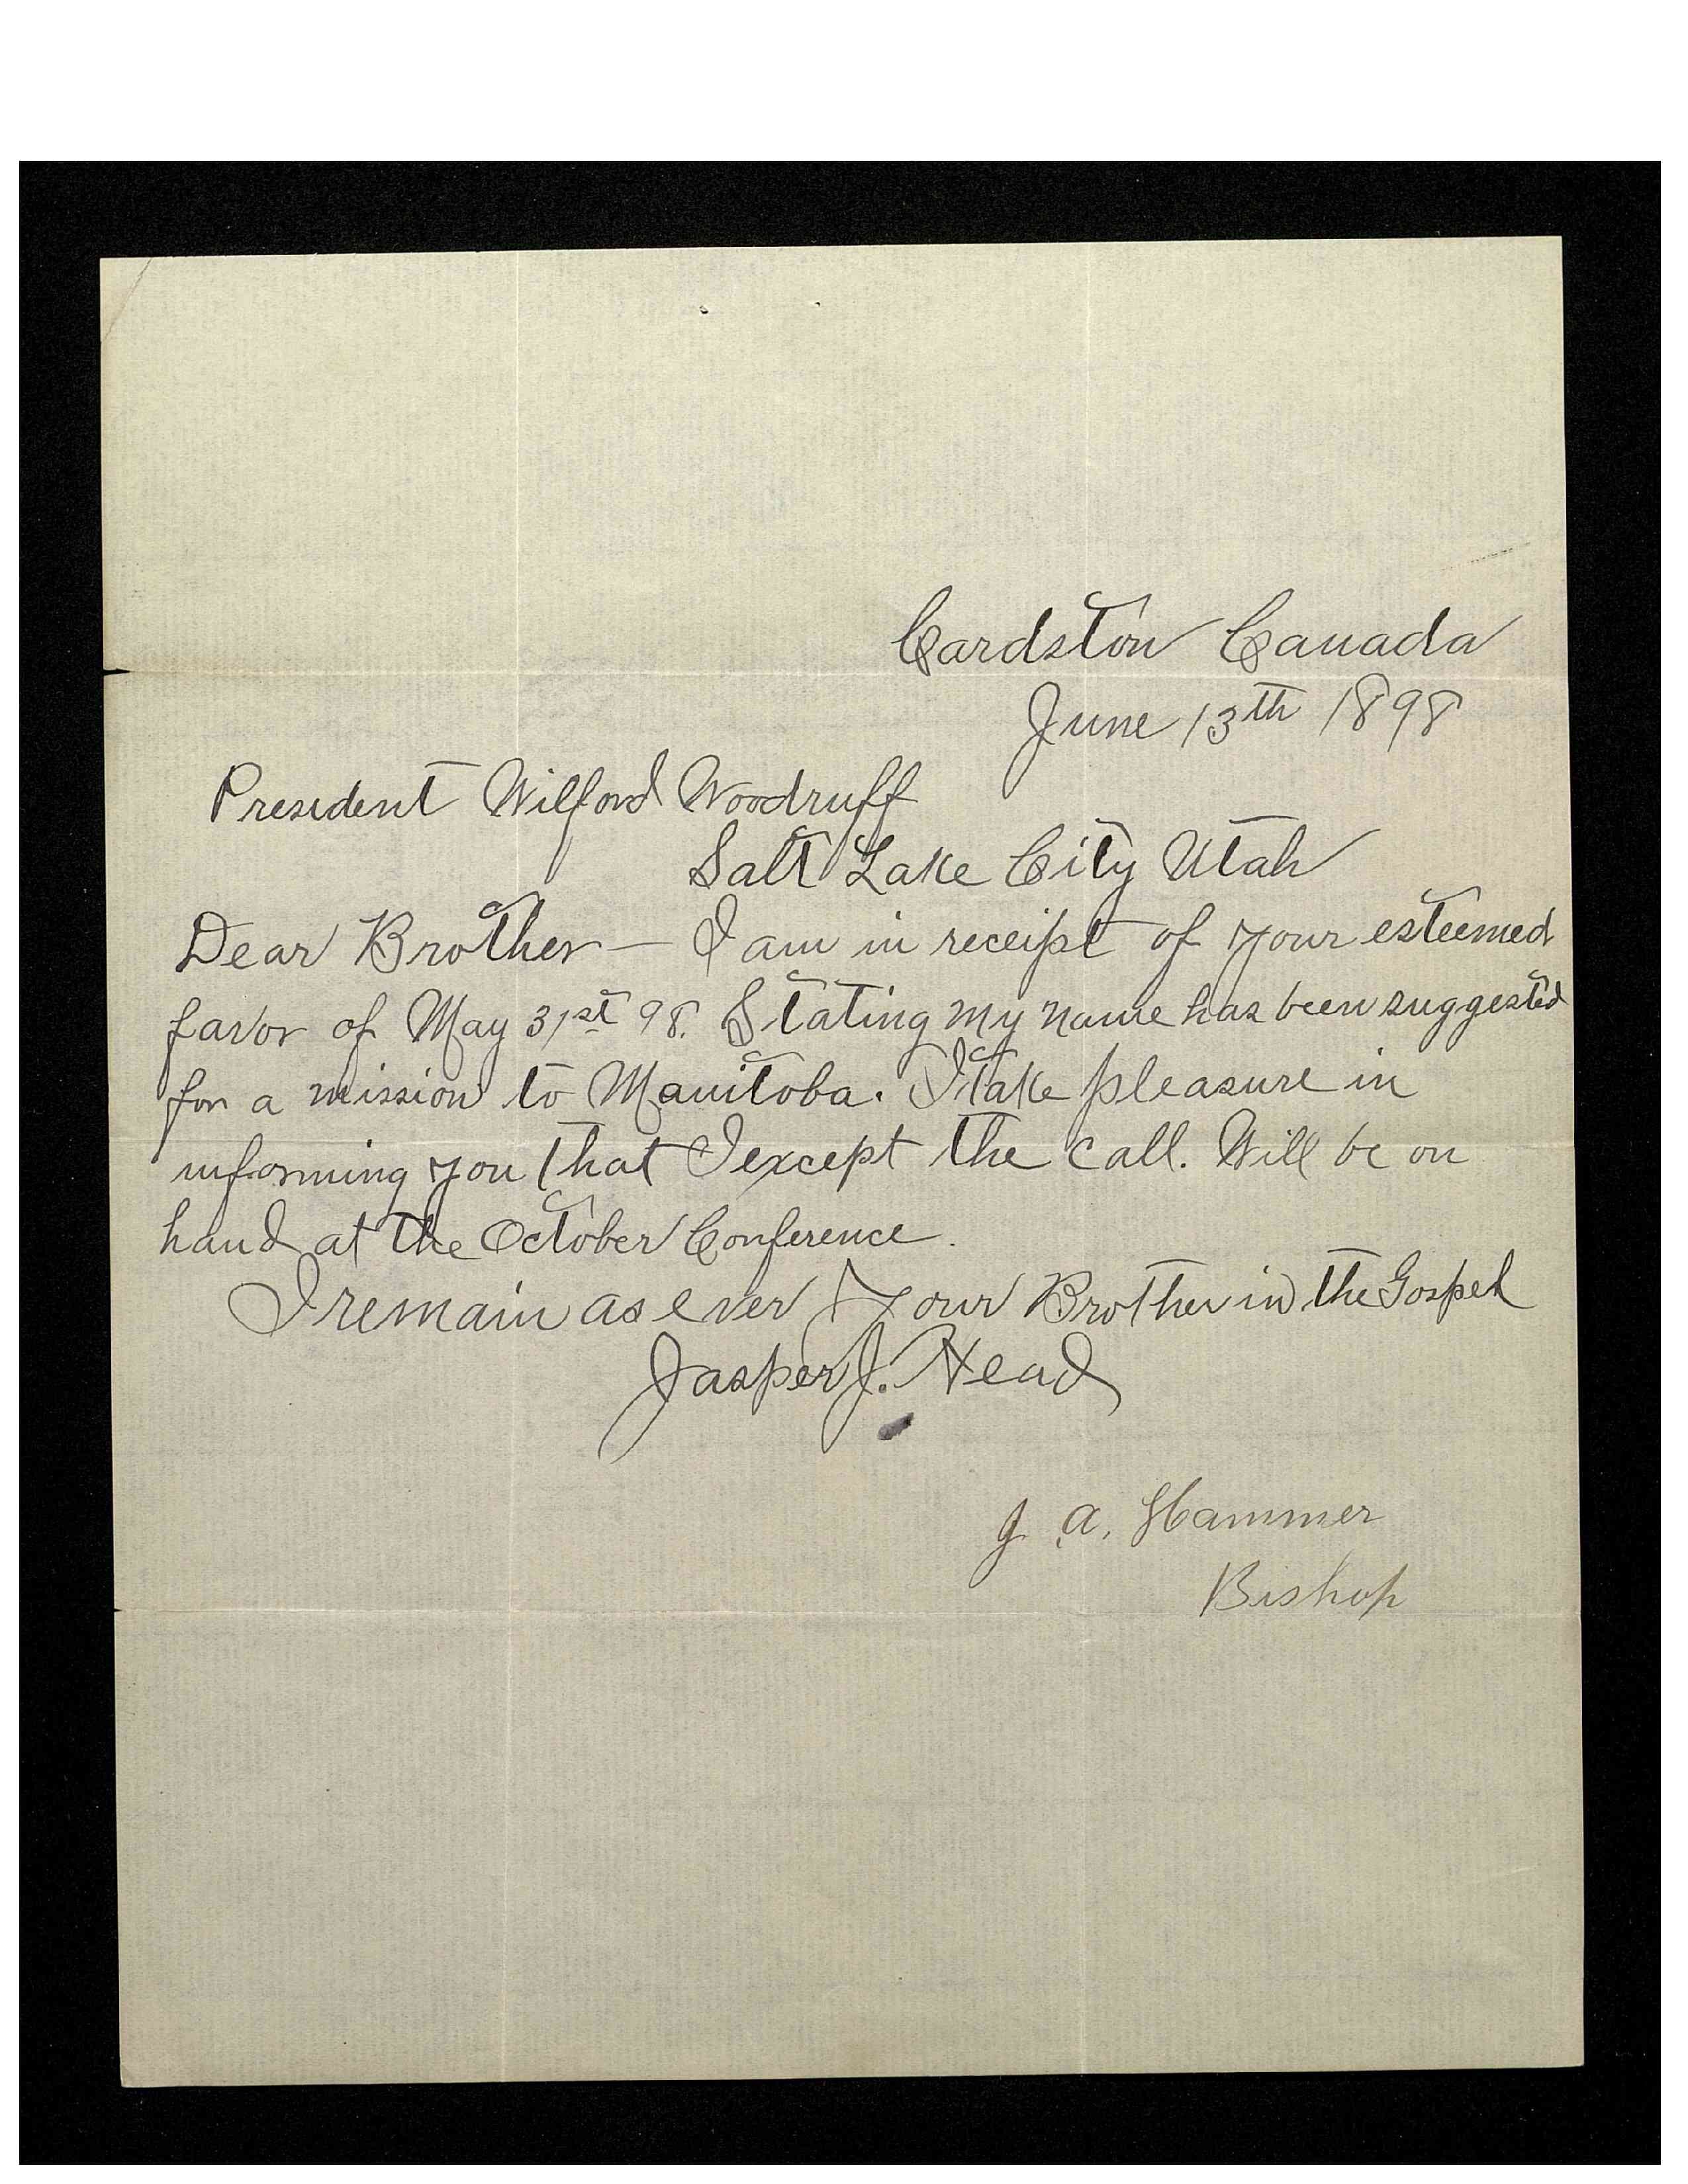 Cardston Canada
June 13th 1898
President Wilford Woodruff
Salt Lake City Utah
Dear Brother — I am in receipt of your esteemed
favor of May 31st 98. Stating my name has been suggested
for a mission to Manitoba. I take pleasure in
informing you that I except the call. Will be on
hand at the October Conference.
I remain as ever Your Brother in the Gospel
Jasper J. Head
J. A. Hammer
Bishop